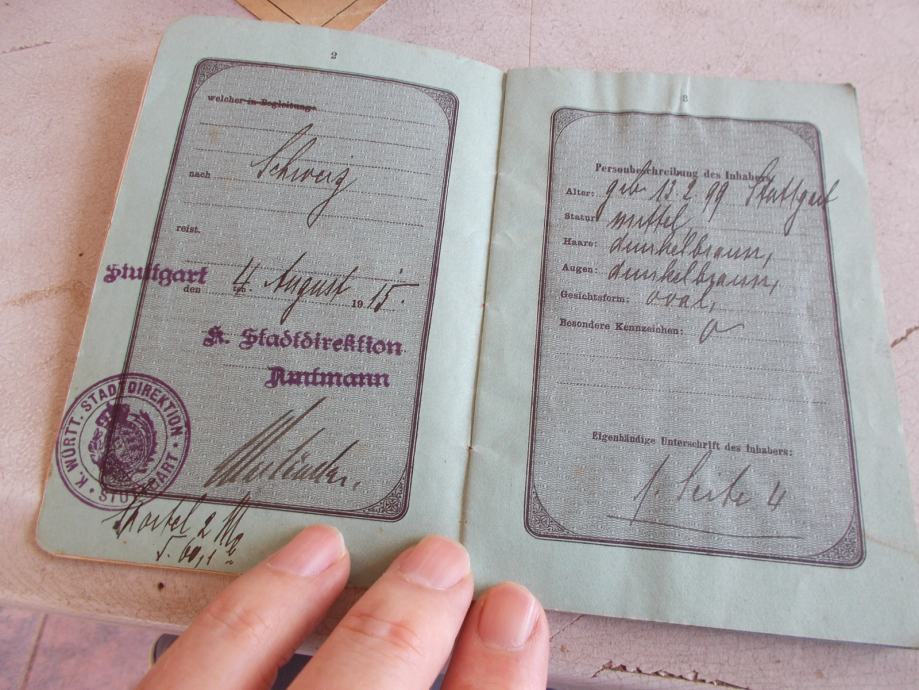 2
welcher in Begleitung
nach Schweiz
reist.
Stuttgart
den 4. August 1915.
K. Stadtdirektion
Amtmann
K. WÜRTT. STADTDIREKTION
STUTTGART
2 M
3
Personbeschreibung des Inhabers
Alter: geb. 13. 2 99 Stuttgart
Statur: mittel
Haare: dunkelbraun,
Augen: dunkelbraun,
Gesichtsform: oval,
Besondere Kennzeichen: o
Eigenhändige Unterschrift des Inhabers:
s. Seite 4